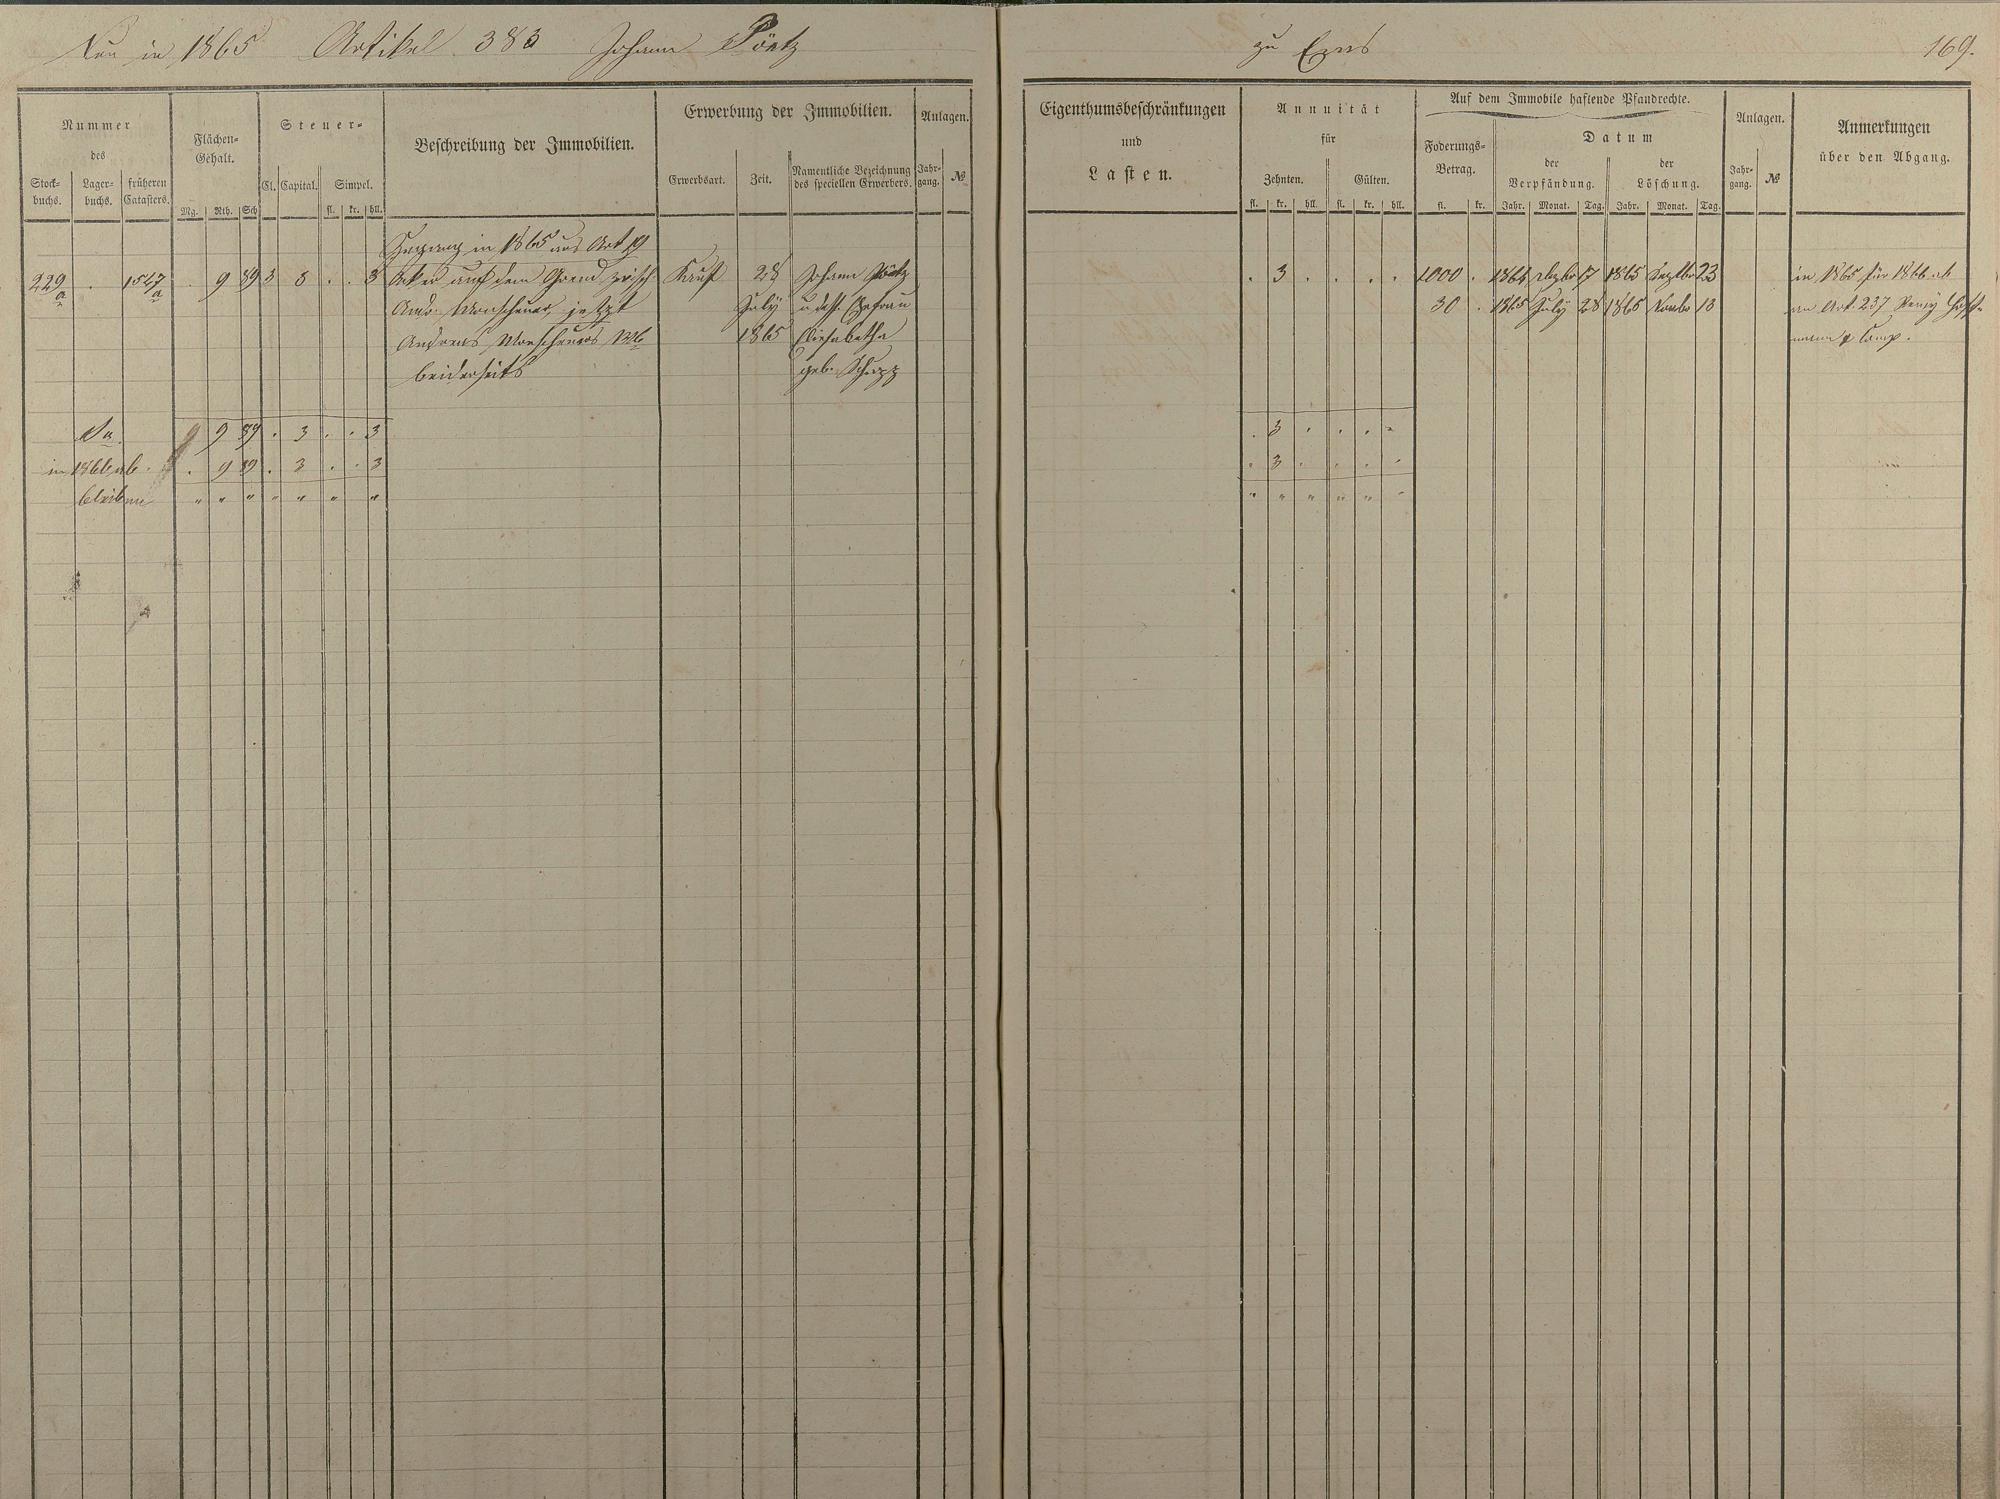 Neu in 1865 Artikel 383 Johann Pöetz zu Ems 169.
Nummer
des
Stock-
buchs.
Lager-
buchs.
früheren
Catasters.
Flächen-
Gehalt.
Mg. Rth. Sch
Steuer-
Cl. Capital. Simpel.
fl. kr. hll.
Beschreibung der Immobilien.
Erwerbung der Immobilien.
Erwerbsart. Zeit.
Namentliche Bezeichnung
des speciellen Erwerbers.
Anlagen.
Jahr-
gang. №
Eigenthumsbeschränkungen
und
Lasten.
Annuität
für
Zehnten. Gülten.
fl. kr. hll. fl. kr. hll.
Auf dem Immobile haftende Pfandrechte.
Foderungs-
Betrag.
fl. kr.
Datum
der
Verpfändung.
Jahr. Monat. Tag.
der
Löschung.
Jahr. Monat. Tag.
Anlagen.
Jahr-
gang. №
Anmerkungen
über den Abgang.
Zugang in 1865 aus Art 19
229 a . 1527 a . 9 89 3 3 . . 3 Acker auf dem Grend zwisch. Kauf 28 Johann Pöetz . 3 . . . . 1000 . 1864 Dezbr 17 1865 Septbr 23 in 1865 für 1866 ab
Andr. Monscheuer, jetzt July u dess. Ehefrau 30 . 1865 July 28 1865 Novbr 13 an Art. 237
Andreas Monscheuers 1865 Elisabetha & Comp.
beiderseits geb.
Sa. 9 89 . 3 . . 3 . 3 . . . .
in 1866 ab . . 9 89 . 3 . . 3 . 3 . . . .
bleiben " " " " " " " " " " " " " "